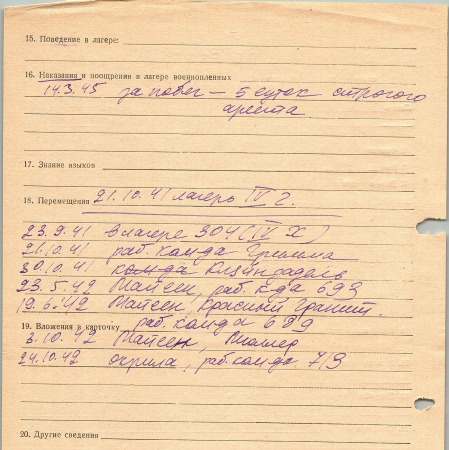 15. Поведение в лагере:
16. Наказания и поощрения в лагере военнопленных
14.3.45 за побег — 5 суток строгого
ареста
17. Знание языков
18. Перемещения 21.10.41 лагерь IV г.
23.9.41 в лагере 304 (IV X)
21.10.41 раб. команда
30.10.41 команда
23.5.42 Майсен, раб. к-да 693
19.6.42 Майсен, Красный Гранит.
раб. команда 689
19. Вложения в карточку
3.10.42 Майсен,
24.10.42 раб. команда 713
20. Другие сведения